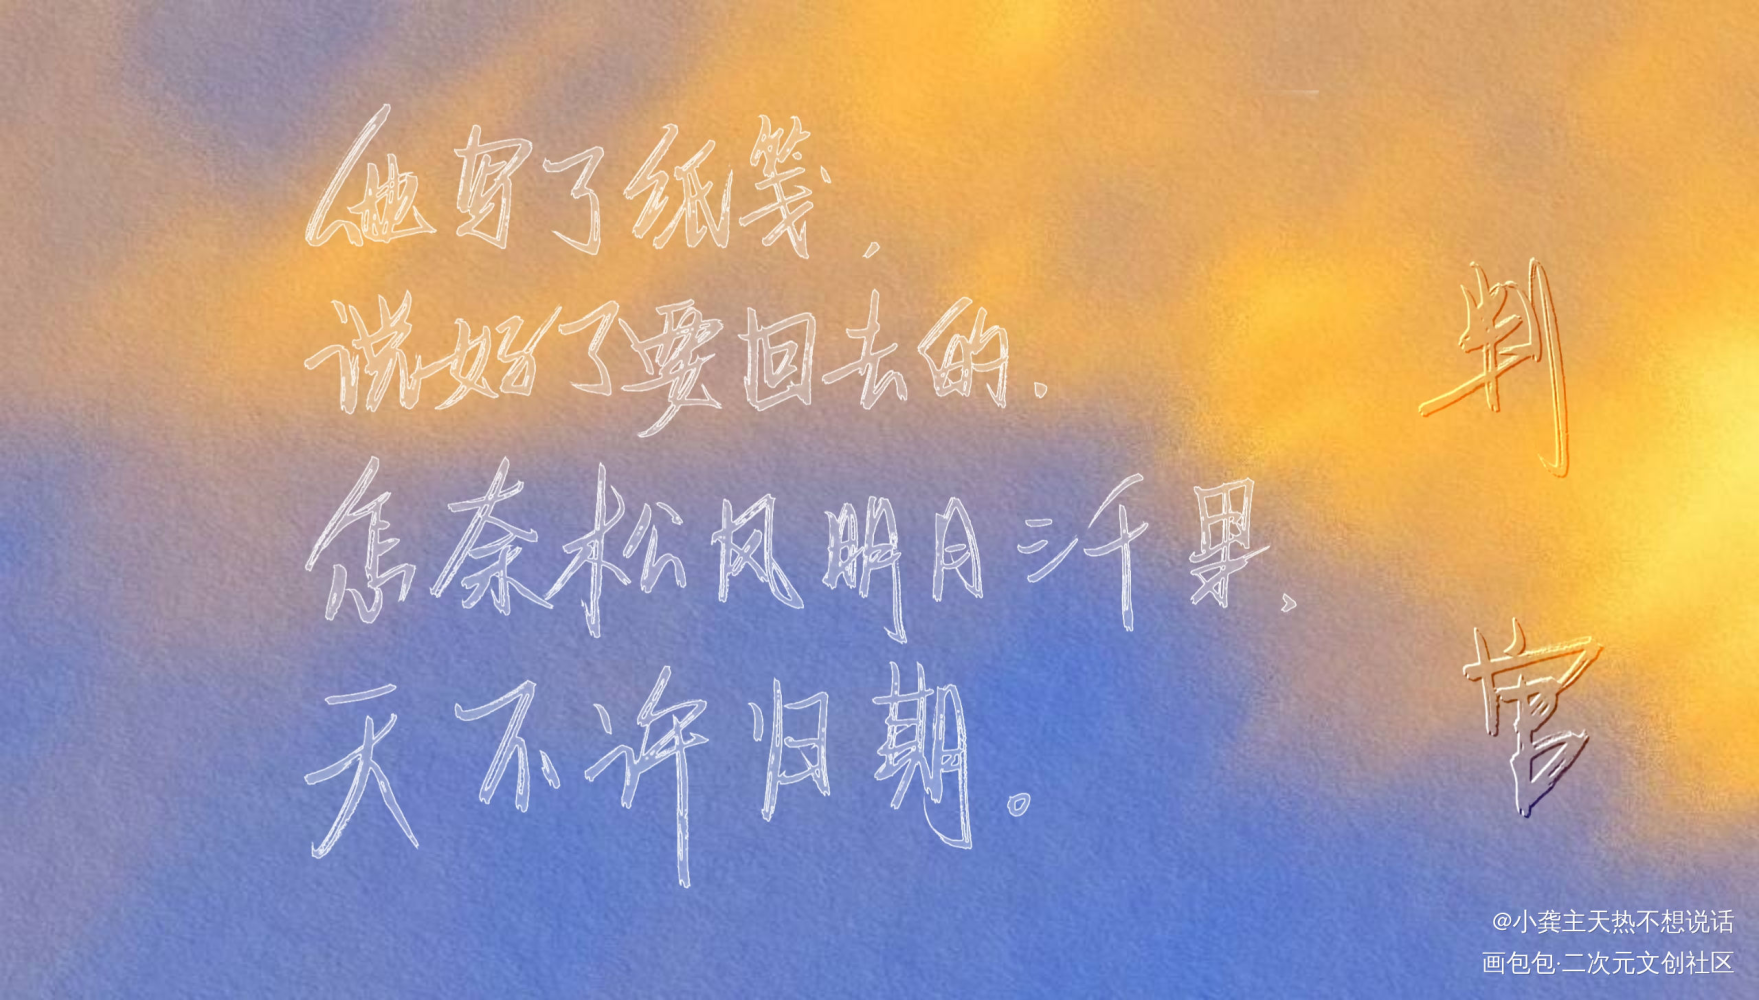 他写了纸笺，
说好了要回去的.
怎奈松风明月三千里，
天不许归期。
判官
@小龚主天热不想说话
画包包·二次元文创社区